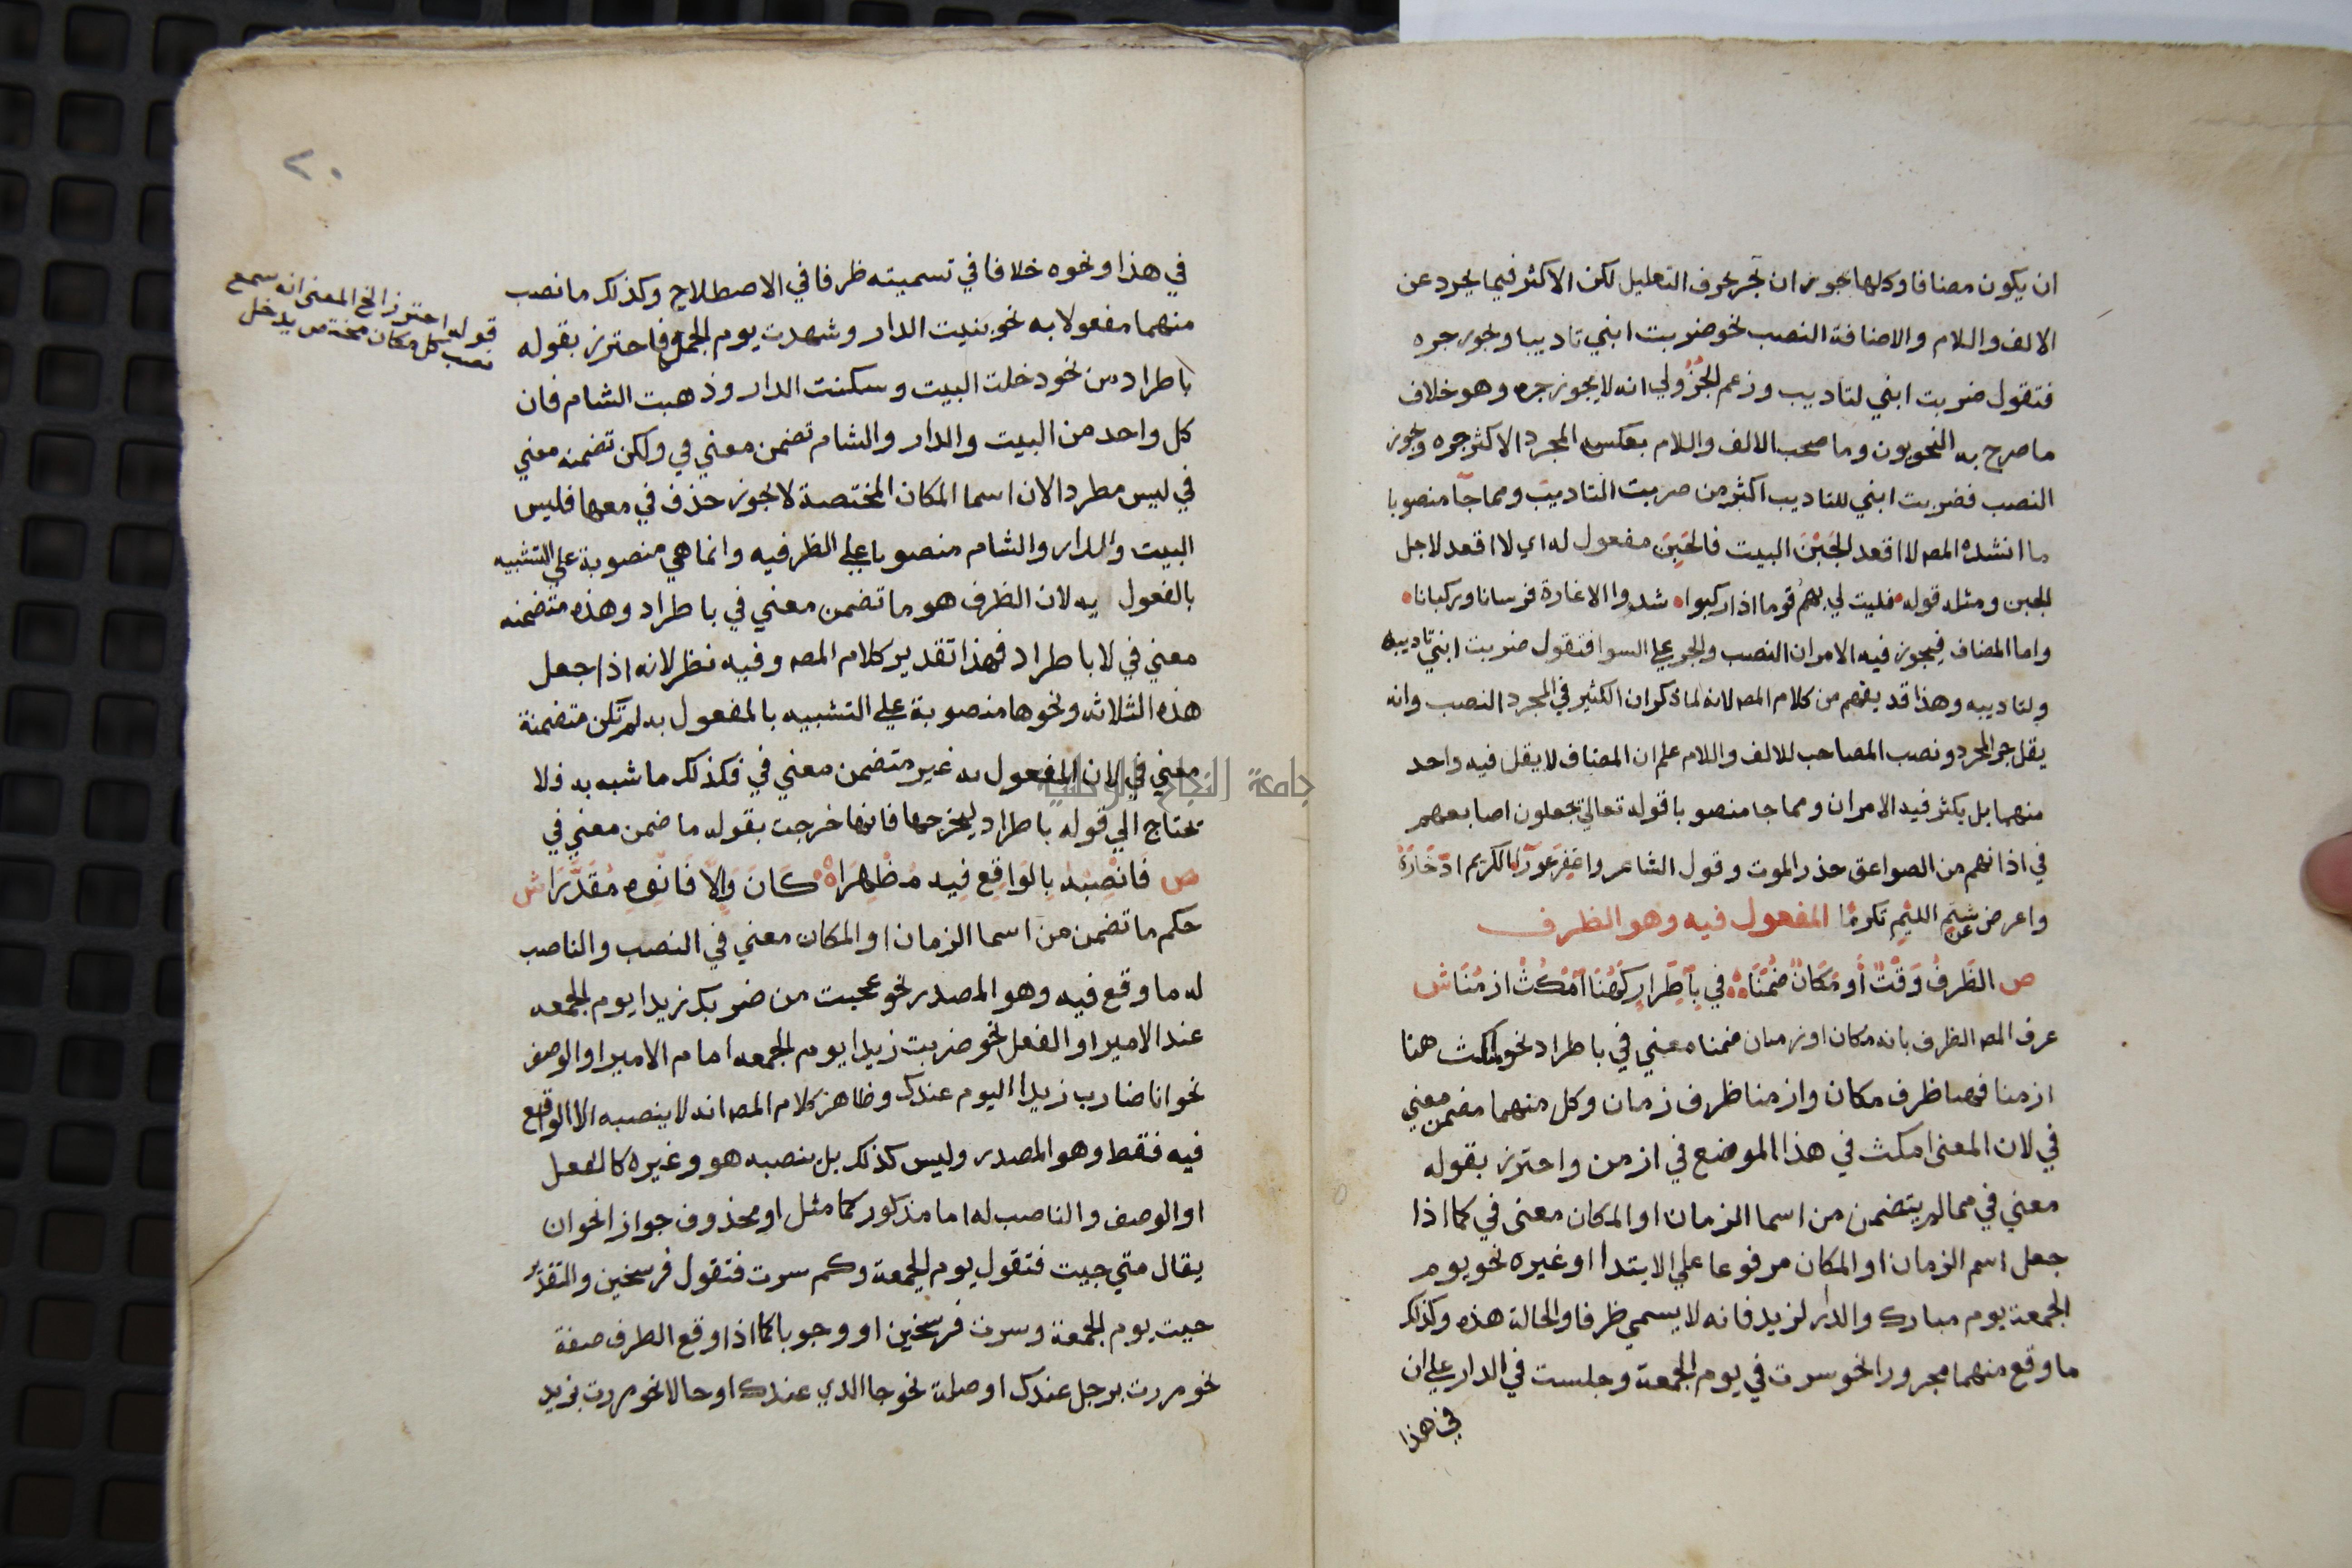 ان يكون مضافا وكلها يجوز ان تجر بحرف التعليل لكن الاكثر فيما يجرد عن
الالف واللام والاضافة النصب نحو ضربت ابني تاديبا ويجوز جره
فتقول ضربت ابني لتاديب وزعم الجزولي انه لا يجوز جره وهو خلاف
ما صرح به النحويون وما صحب الالف واللام بعكس المجرد الاكثر جره ويجوز
النصب فضربت ابني للتاديب اكثر من ضربت التاديب ومما جا منصوبا
ما انشده المص لا اقعد الجبن البيت فالجبن مفعول له اي لا اقعد لاجل
الجبن ومثله قوله فليت لي بهم قوما اذا ركبوا شدوا الاغارة فرسانا وركبانا
واما المضاف فيجوز فيه الامران النصب والجر علي السوا فتقول ضربت ابني تاديبه
ولتاديبه وهذا قد يفهم من كلام المص لانه لما ذكر ان الكثير في المجرد النصب وانه
يقل جر المجرد ونصب المصاحب للالف واللام علم ان المضاف لا يقل فيه واحد
منهما بل يكثر فيه الامران ومما جا منصوبا قوله تعالي يجعلون اصابعهم
في اذانهم من الصواعق حذر الموت وقول الشاعر واغفر عورآ الكريم ادخاره
واعرض عن شتم اللئيم تكرما المفعول فيه وهو الظرف
ص الظرف وقت او مكان ضمنا في باطراد كهنا امكث ازمنا ش
عرف المص الظرف بانه مكان او زمان ضمنا معني في باطراد نحو امكث هنا
ازمنا فهنا ظرف مكان وازمنا ظرف زمان وكل منهما مضمن معني
في لان المعني امكث في هذا الموضع في ازمن واحترز بقوله
معني في مما لم يتضمن من اسما الزمان او المكان معني في كما اذا
جعل اسم الزمان او المكان مرفوعا علي الابتدا او غيره نحو يوم
الجمعة يوم مبارك والدار لزيد فانه لا يسمي ظرفا والحالة هذه وكذلك
ما وقع منهما مجرورا نحو سرت في يوم الجمعة وجلست في الدار علي ان
في هذا
٢٠
في هذا ونحوه خلافا في تسميته ظرفا في الاصطلاح وكذلك ما نصب
منهما مفعولا به نحو بنيت الدار وشهدت يوم الجمل واحترز بقوله
باطراد من نحو دخلت البيت وسكنت الدار وذهبت الشام فان
كل واحد من البيت والدار والشام تضمن معني في ولكن تضمنه معني
في ليس مطردا لان اسما المكان المختصة لا يجوز حذف في معها فليس
البيت والدار والشام منصوبا علي الظرفيه وانما هي منصوبة علي التشبيه
بالمفعول به لان الظرف هو ما تضمن معني في باطراد وهذه متضمنه
معني في لا باطراد فهذا تقدير كلام المص وفيه نظر لانه اذا جعل
هذه الثلاثه ونحوها منصوبة علي التشبيه بالمفعول به لم تكن متضمنة
معني في لان المفعول به غير متضمن معني في فكذلك ما شبه به فلا
تحتاج الي قوله باطراد ليخرجها فانها خرجت بقوله ما ضمن معني في
ص فانصبه بالواقع فيه مظهرا كان والا فانوه مقدرا ش
حكم ما تضمن من اسما الزمان او المكان معني في النصب والناصب
له ما وقع فيه وهو المصدر نحو عجبت من ضربك زيدا يوم الجمعه
عند الامير او الفعل نحو ضربت زيدا يوم الجمعه امام الامير او الوصف
نحو انا ضارب زيدا اليوم عندك وظاهر كلام المص انه لا ينصبه الا الواقع
فيه فقط وهو المصدر وليس كذلك بل ينصبه هو وغيره كالفعل
او الوصف والناصب له اما مذكور كما مثل او محذوف جوازا نحو ان
يقال متي جيت فتقول يوم الجمعة وكم سرت فتقول فرسخين والتقدير
جيت يوم الجمعة وسرت فرسخين او وجوبا كما اذا وقع الظرف صفة
نحو مررت برجل عندك او صلة نحو جا الذي عندك او حالا نحو مررت بزيد
قوله احترز الخ المعني انه سمع
نصب كل مكان مختص بدخل
جامعة النجاح الوطنية